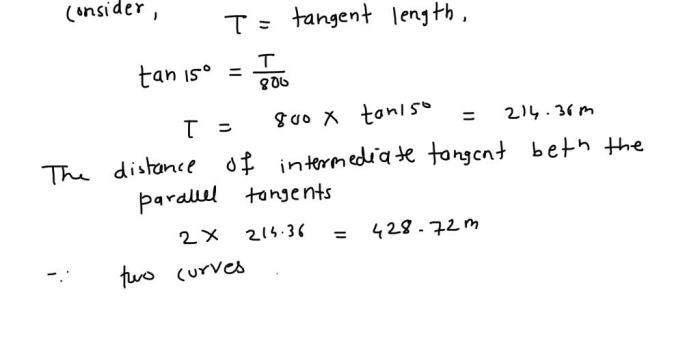 Consider, T = tangent length,
tan 15° = T/800
T = 800 × tan15° = 214.36m
The distance of intermediate tangent betn the
parallel tangents
2 × 214.36 = 428.72m
∵ two curves